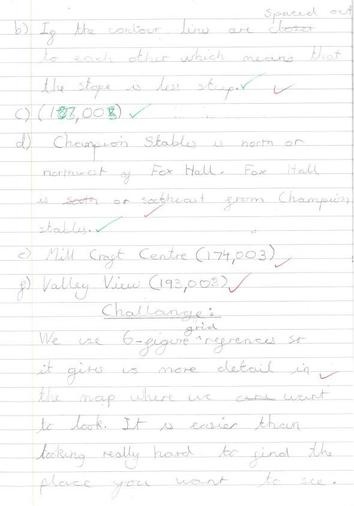 spaced out
b) If the contour line are closer
to each other which means that
the slope is less steep.
c) (187,008)
d) Champion Stables is north or
northwest of Fox Hall. Fox Hall
is south or southeast from Champion
stables.
e) Mill Craft Centre (174,003)
f) Valley View (193,003)
Challange:
grid
We use 6-figure refrences so
it gives us more detail in
the map where we want
to look. It is easier than
looking really hard to find the
place you want to see.